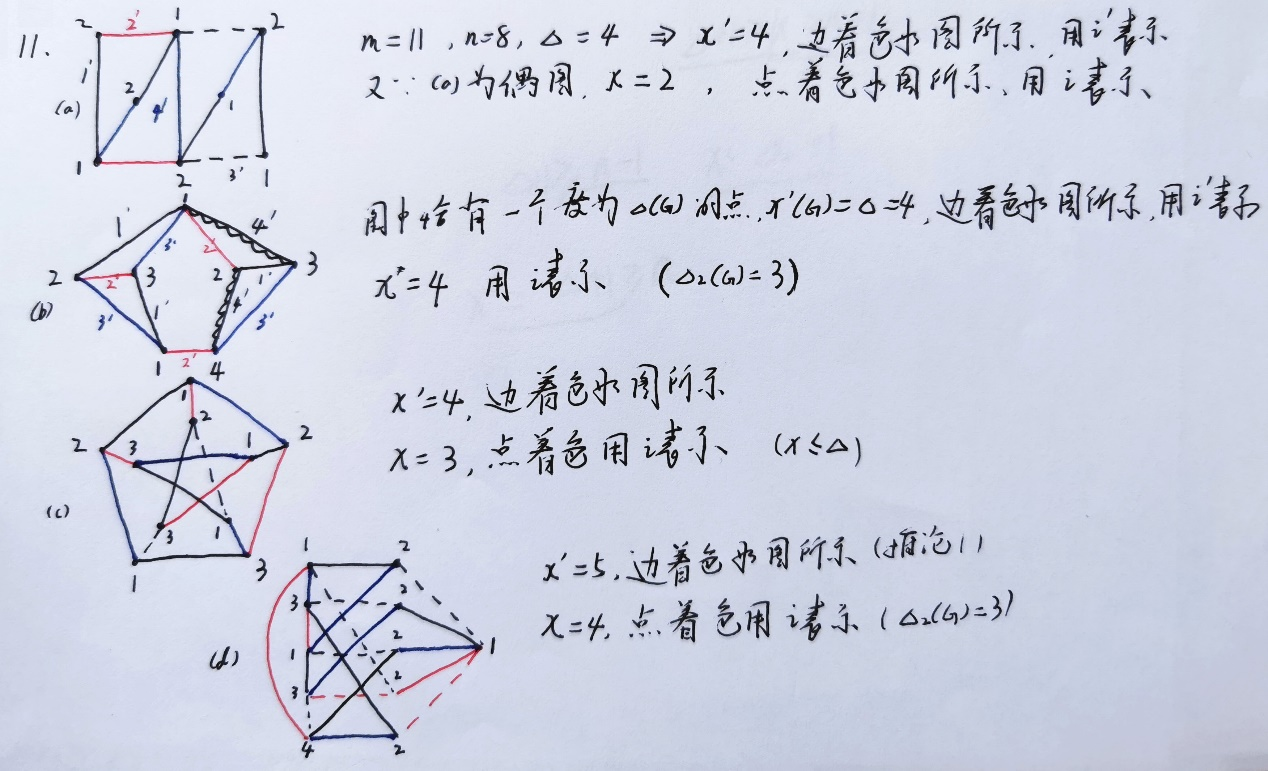 11.
2 2' 1 2
1' 2 4' 1
(a)
1 2 3' 1
m=11, n=8, Δ=4 ⇒ x'=4, 边着色如图所示, 用i'表示
又∵ (a)为偶图, x=2, 点着色如图所示、用i表示、
1
1' 3' 2' 4'
2 2' 3 2 1' 3
(b) 3' 1' 4' 3'
1 2' 4
图中恰有一个度为Δ(G)的点, x'(G)=Δ=4, 边着色如图所示, 用i'表示
x*=4 用i表示、 (Δ₂(G)=3)
1
2 3 2 1 2
(c) 3 1
1 3
x'=4, 边着色如图所示
x=3, 点着色用i表示、 (x≤Δ)
1 2
3 2
(d) 1 2 1
3 2
4 2
x'=5, 边着色如图所示 (推论1)
x=4, 点着色用i表示 (Δ₂(G)=3)